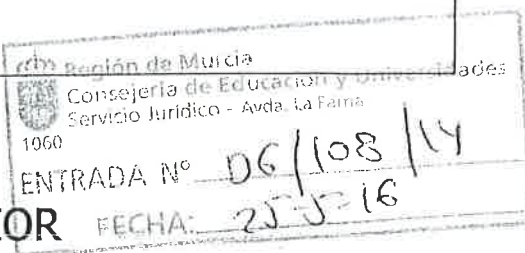 Región de Murcia
Consejería de Educación y Universidades
Servicio Jurídico - Avda. La Fama
1060
ENTRADA Nº D6/108/14
FECHA: 25-5-16
OR